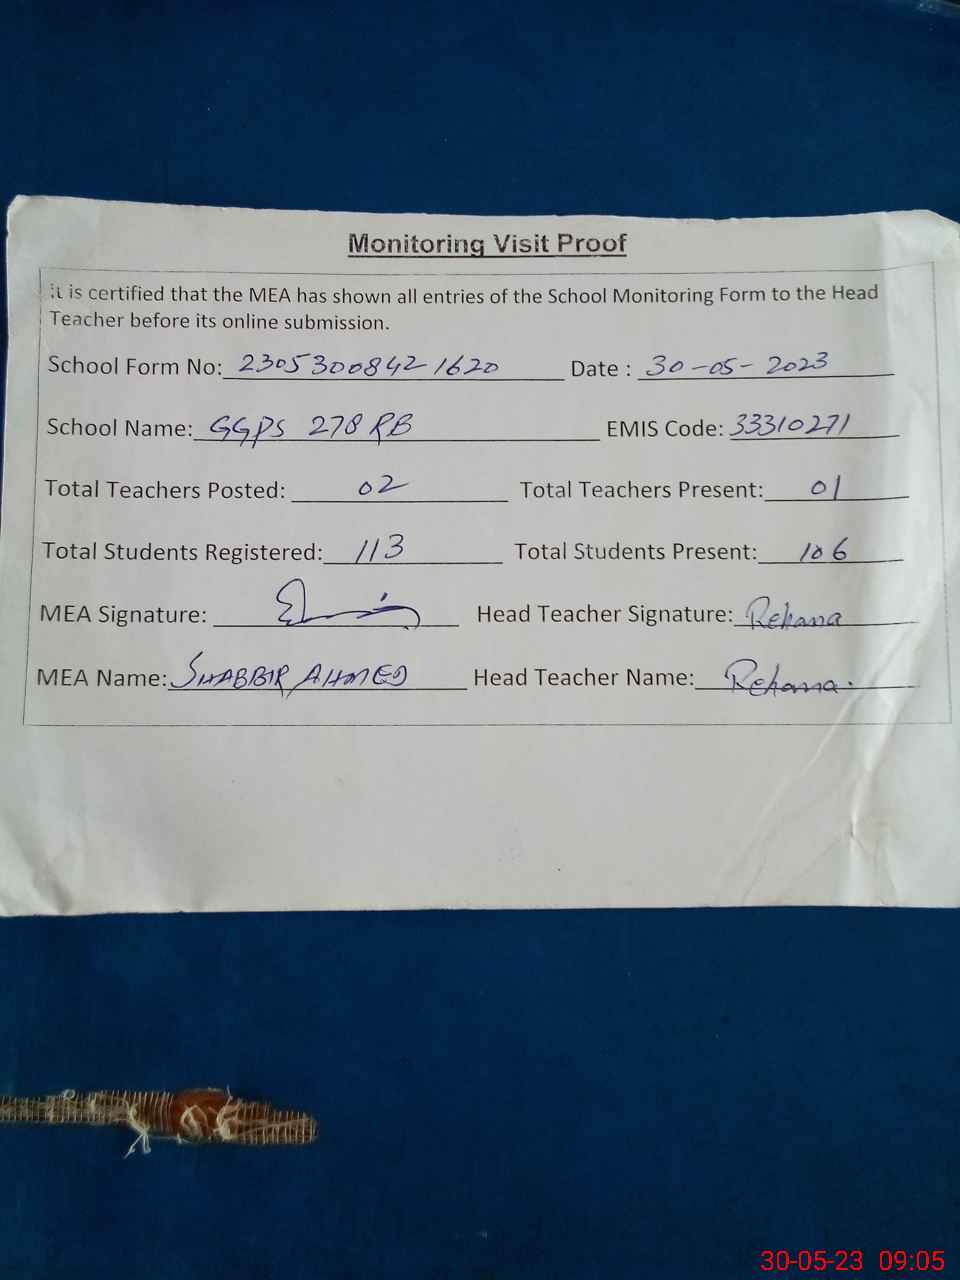 Monitoring Visit Proof
It is certified that the MEA has shown all entries of the School Monitoring Form to the Head
Teacher before its online submission.
School Form No: 23053008421620 Date : 30-05-2023
School Name: GGPS 278 RB EMIS Code: 33310271
Total Teachers Posted: 02 Total Teachers Present: 01
Total Students Registered: 113 Total Students Present: 106
MEA Signature: Head Teacher Signature: Rehana
MEA Name: SHABBIR AHMED Head Teacher Name: Rehana.
30-05-23 09:05